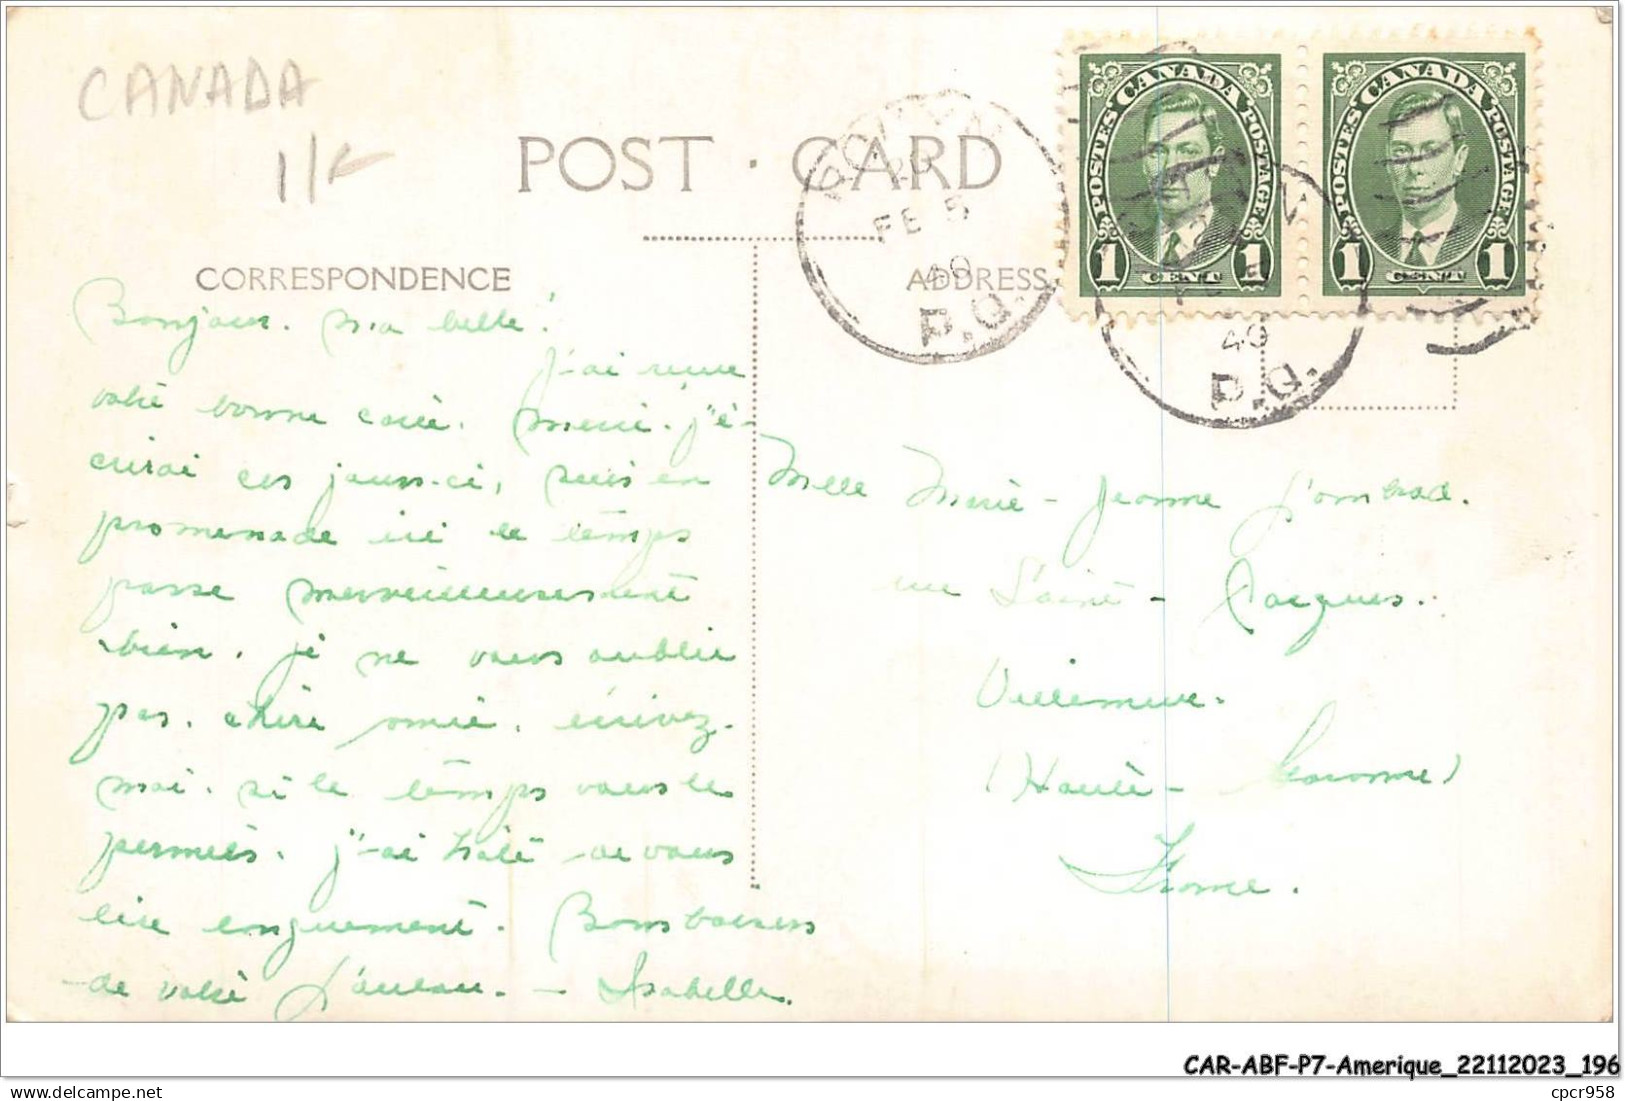 CANADA
1/-
POST · CARD
CORRESPONDENCE
ADDRESS
ROUYN
FE 5
40
P.Q.
40
P.Q.
POSTES CANADA POSTAGE
1 CENT 1
POSTES CANADA POSTAGE
1 CENT 1
Bonjour. Ma belle!
J'ai reçue
votre bonne carte. Merci. j'é-
crirai ces jours-ci, suis en
promenade ici le temps
passe merveilleusement
bien. je ne vous oublie
pas. chère amie. écrivez-
moi. si le temps vous le
permets. j'ai hâte de vous
lire longuement. Bons baisers
de votre Isabelle.
Melle Marie-Jeanne
rue Saint-Jacques.
Villemur.
(Haute-Garonne)
France.
CAR-ABF-P7-Amerique_22112023_196
delcampe.net
cpcr958